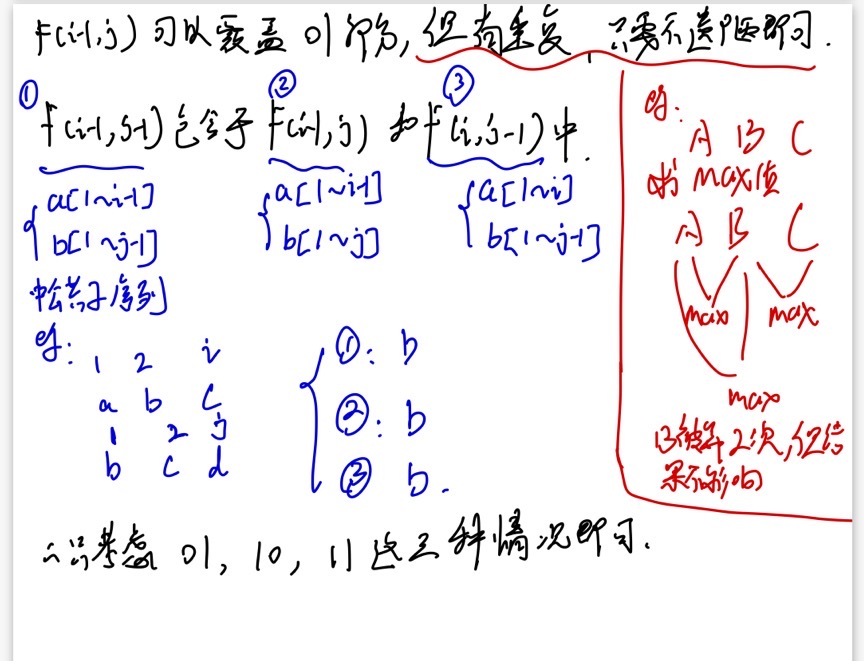 f(i-1,j) 可以覆盖 01 部分, 但有重复, 只要不遗漏即可.
① ② ③
f(i-1,j-1) 包含于 f(i-1,j) 和 f(i,j-1) 中.
a[1~i-1] a[1~i-1] a[1~i]
b[1~j-1] b[1~j] b[1~j-1]
中公共子序列
eg:
1 2 i
a b c
1 2 j
b c d
①: b
②: b
③ b.
eg:
A B C
求 max值
A B C
max max
max
B被算2次,但结
果不影响
∴只考虑 01, 10, 11 这三种情况即可.